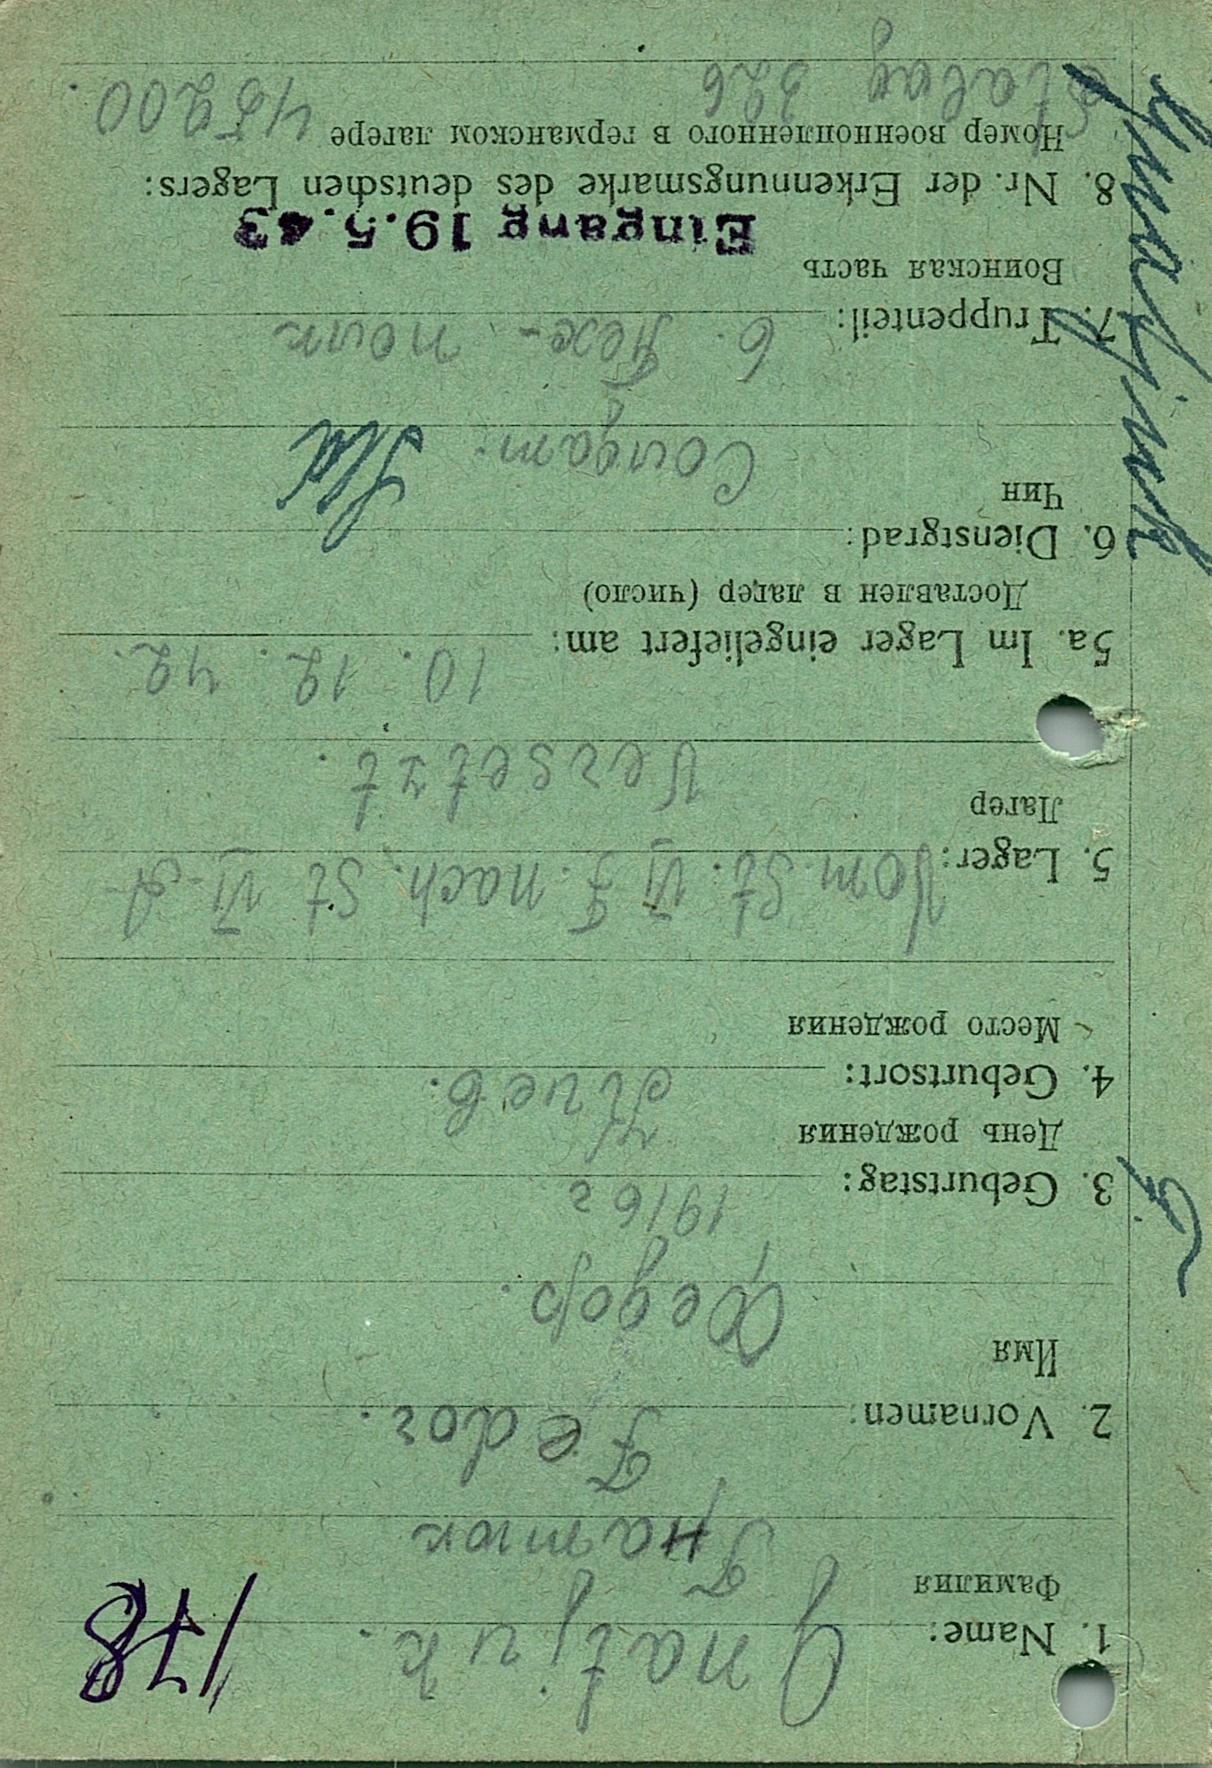 178
1. Name: Gnatjuk.
Фамилия Гнатюк
2. Vornamen: Fedor.
Имя Федор.
3. Geburtstag: 1916 г
День рождения
4. Geburtsort: Киев.
Место рождения
5. Lager: Vom St. VI F. nach. St VI-A
Лагер versetzt.
5a. Im Lager eingeliefert am: 10. 12. 42.
Доставлен в лагер (число)
6. Dienstgrad:
Чин Солдат.
7. Truppenteil: 6. полк
Воинская часть
Eingang 19.5.43
8. Nr. der Erkennungsmarke des deutschen Lagers:
Номер военнопленного в германском лагере 45200.
Stalag 326
Gnatjuk
F.